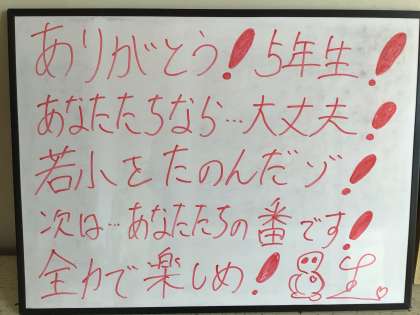 ありがとう!5年生!
あなたたちなら…大丈夫!
若小をたのんだゾ!
次は…あなたたちの番です!
全力で楽しめ!